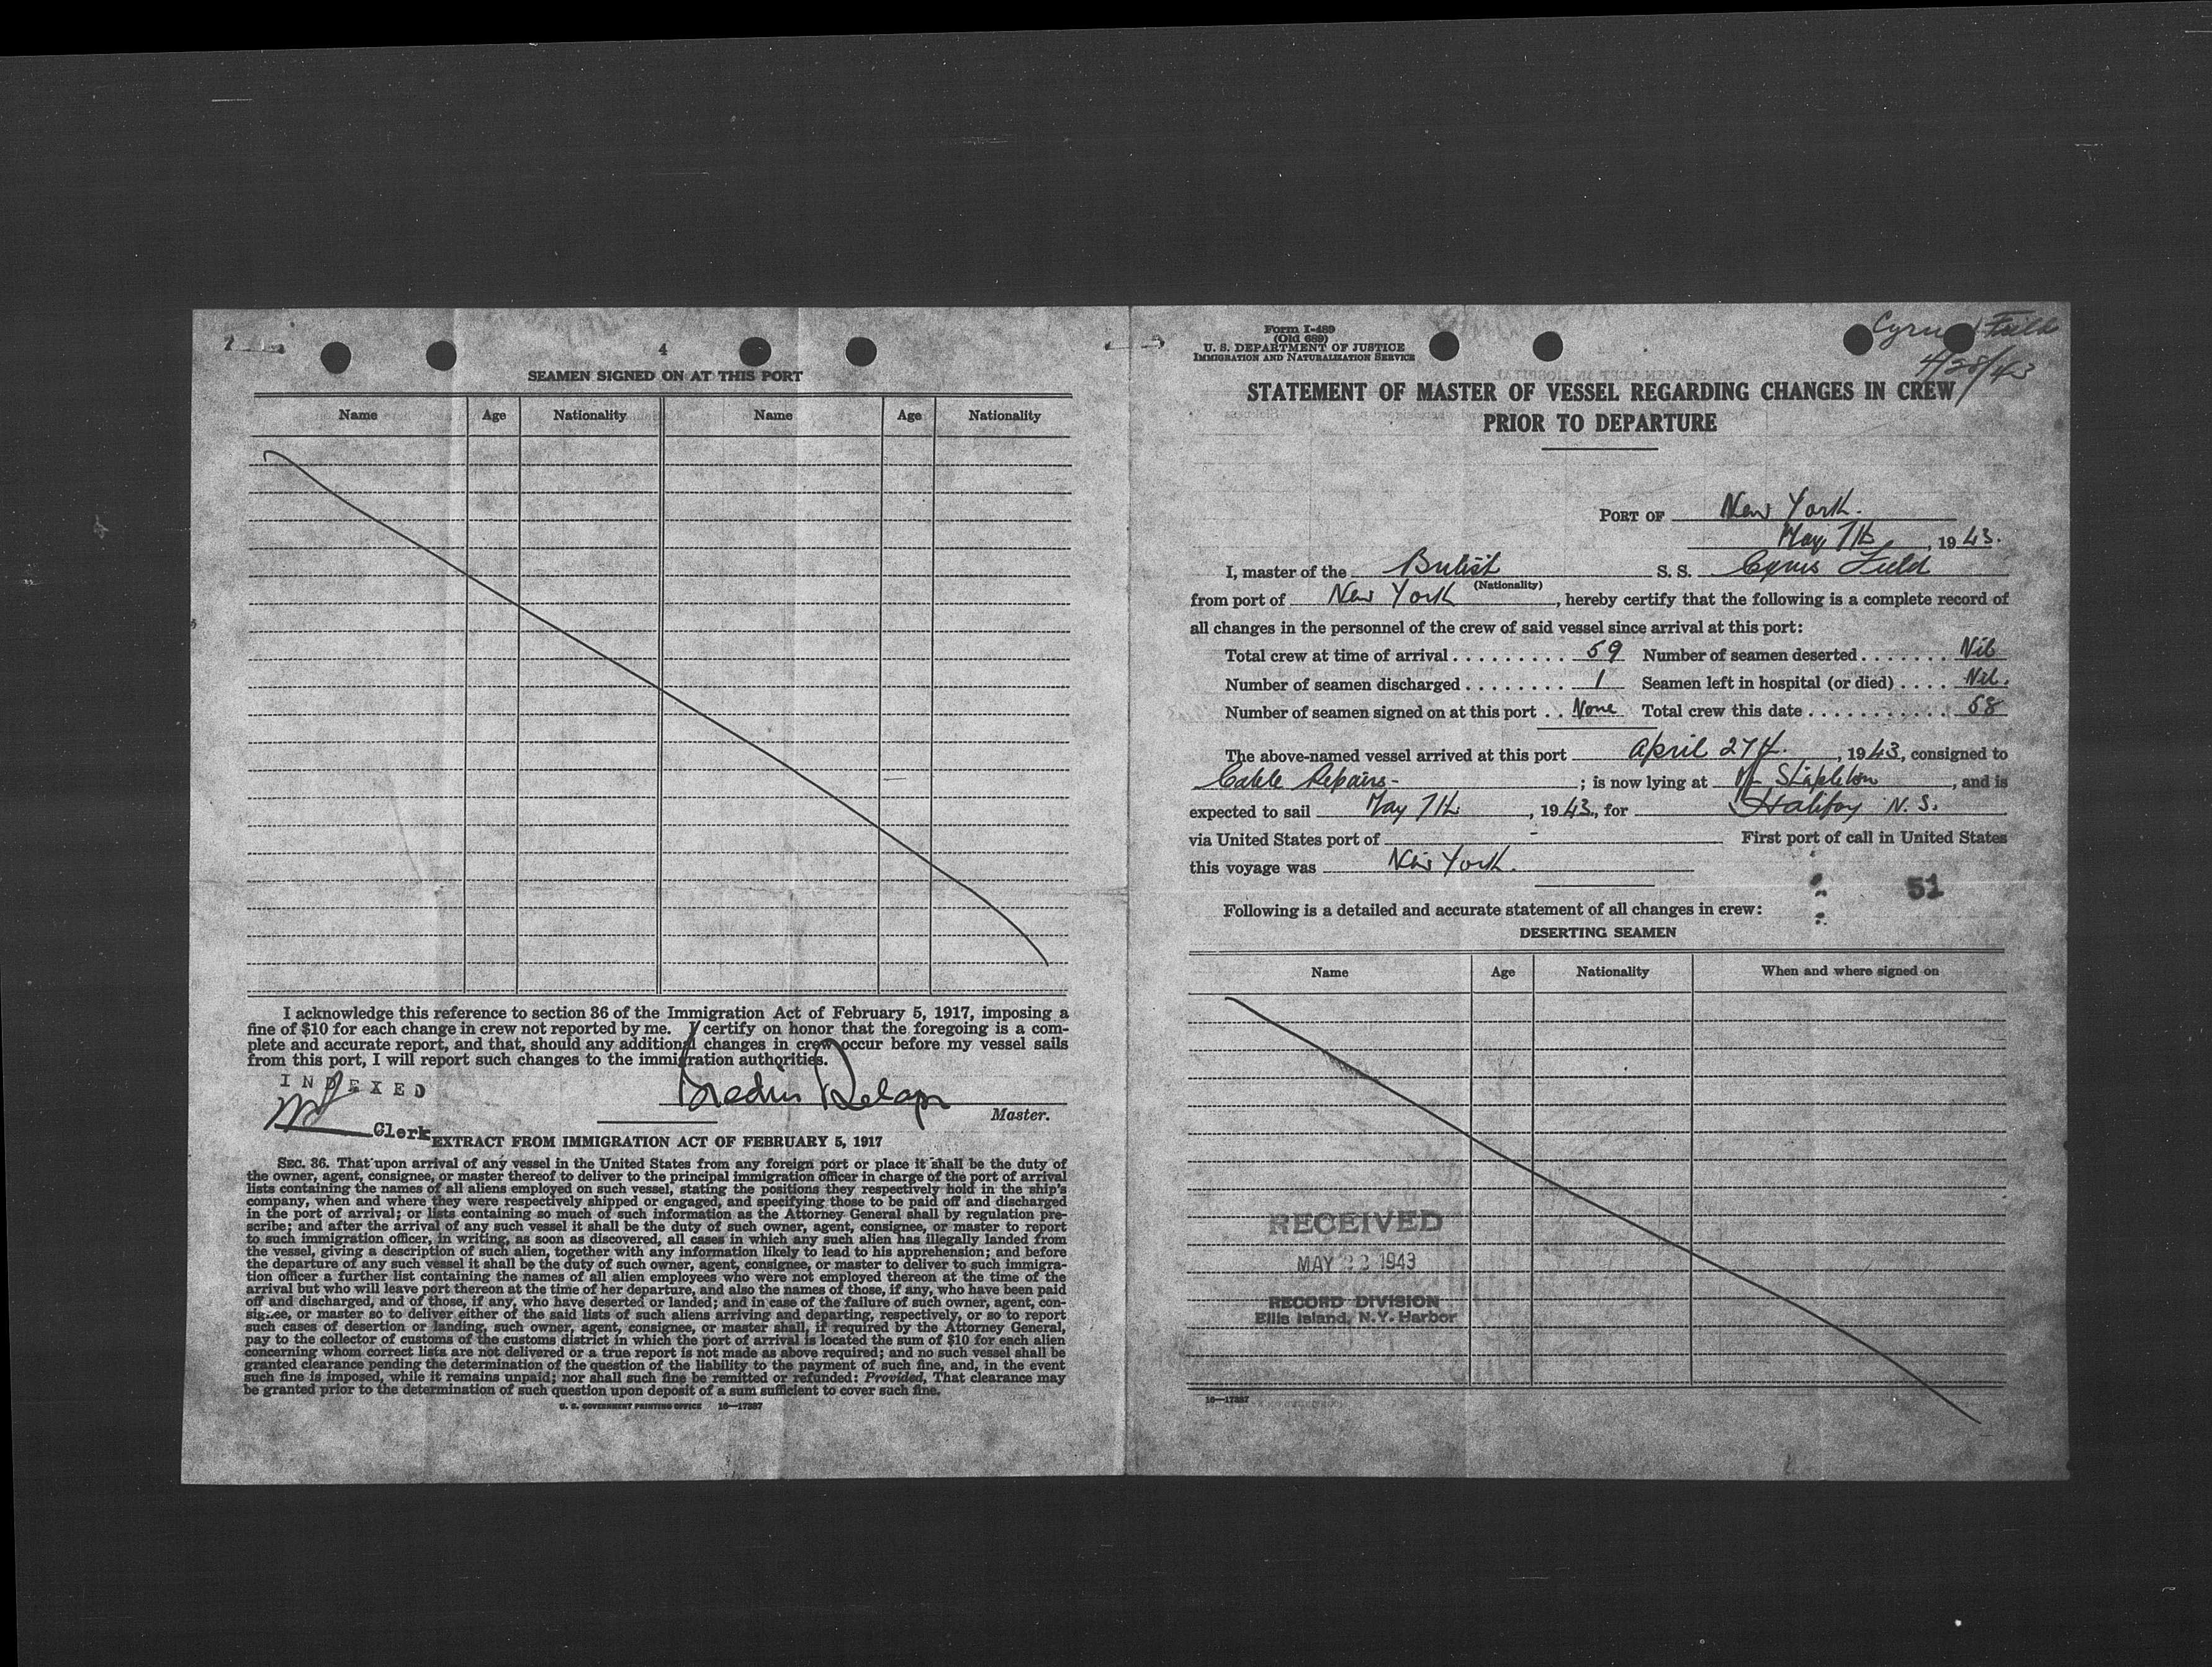 4
SEAMEN SIGNED ON AT THIS PORT
Name Age Nationality Name Age Nationality
I acknowledge this reference to section 36 of the Immigration Act of February 5, 1917, imposing a
fine of $10 for each change in crew not reported by me. I certify on honor that the foregoing is a com-
plete and accurate report, and that, should any additional changes in crew occur before my vessel sails
from this port, I will report such changes to the immigration authorities.
INDEXED
Master.
Clerk
EXTRACT FROM IMMIGRATION ACT OF FEBRUARY 5, 1917
SEC. 36. That upon arrival of any vessel in the United States from any foreign port or place it shall be the duty of
the owner, agent, consignee, or master thereof to deliver to the principal immigration officer in charge of the port of arrival
lists containing the names of all aliens employed on such vessel, stating the positions they respectively hold in the ship's
company, when and where they were respectively shipped or engaged, and specifying those to be paid off and discharged
in the port of arrival; or lists containing so much of such information as the Attorney General shall by regulation pre-
scribe; and after the arrival of any such vessel it shall be the duty of such owner, agent, consignee, or master to report
to such immigration officer, in writing, as soon as discovered, all cases in which any such alien has illegally landed from
the vessel, giving a description of such alien, together with any information likely to lead to his apprehension; and before
the departure of any such vessel it shall be the duty of such owner, agent, consignee, or master to deliver to such immigra-
tion officer a further list containing the names of all alien employees who were not employed thereon at the time of the
arrival but who will leave port thereon at the time of her departure, and also the names of those, if any, who have been paid
off and discharged, and of those, if any, who have deserted or landed; and in case of the failure of such owner, agent, con-
signee, or master so to deliver either of the said lists of such aliens arriving and departing, respectively, or so to report
such cases of desertion or landing, such owner, agent, consignee, or master shall, if required by the Attorney General,
pay to the collector of customs of the customs district in which the port of arrival is located the sum of $10 for each alien
concerning whom correct lists are not delivered or a true report is not made as above required; and no such vessel shall be
granted clearance pending the determination of the question of the liability to the payment of such fine, and, in the event
such fine is imposed, while it remains unpaid; nor shall such fine be remitted or refunded: Provided, That clearance may
be granted prior to the determination of such question upon deposit of a sum sufficient to cover such fine.
U. S. GOVERNMENT PRINTING OFFICE 16—17387
Form I-489
(Old 689)
U. S. DEPARTMENT OF JUSTICE
IMMIGRATION AND NATURALIZATION SERVICE
Cyrus Field
4/28/43
STATEMENT OF MASTER OF VESSEL REGARDING CHANGES IN CREW
PRIOR TO DEPARTURE
PORT OF New York.
May 7th, 1943.
I, master of the British S. S. Cyrus Field
(Nationality)
from port of New York, hereby certify that the following is a complete record of
all changes in the personnel of the crew of said vessel since arrival at this port:
Total crew at time of arrival 59 Number of seamen deserted Nil
Number of seamen discharged 1 Seamen left in hospital (or died) Nil.
Number of seamen signed on at this port None Total crew this date 58
The above-named vessel arrived at this port April 27th, 1943, consigned to
Cable Repairs-; is now lying at Stapleton, and is
expected to sail May 7th, 1943, for Halifax N. S.
via United States port of - First port of call in United States
this voyage was New York.
51
Following is a detailed and accurate statement of all changes in crew:
DESERTING SEAMEN
Name Age Nationality When and where signed on
RECEIVED
MAY 22 1943
RECORD DIVISION
Ellis Island, N.Y. Harbor
16—17387